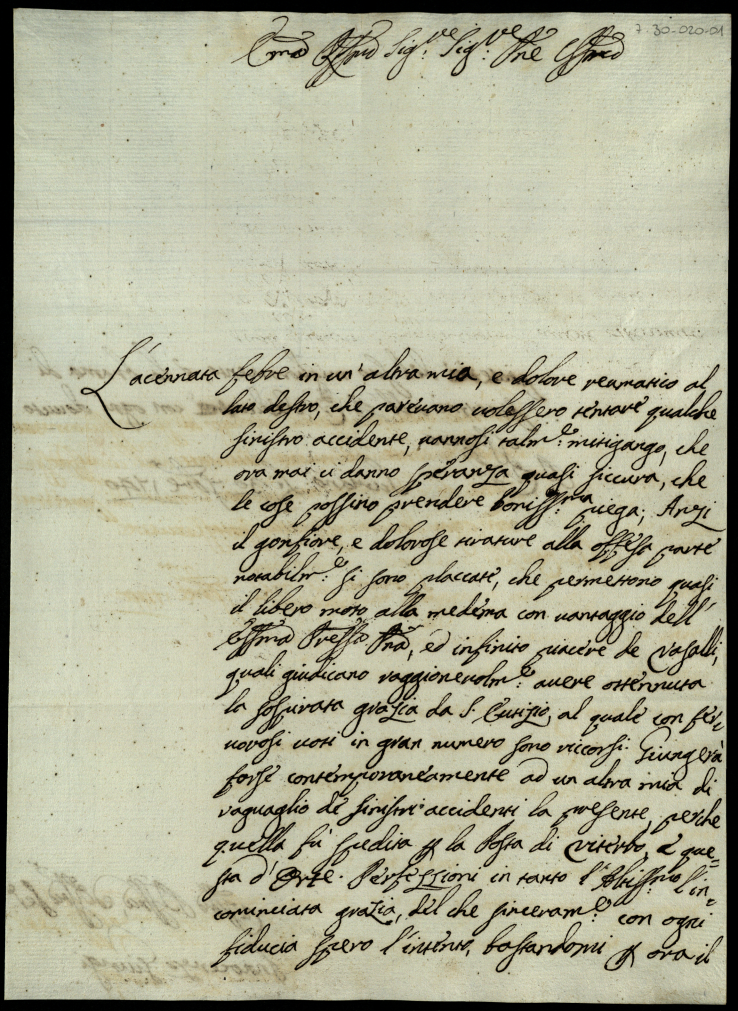 7-30-020-01
Sig.re Sig.re
L'acennata febre in un'altra mia, e dolore reumatico al
lato destro, che parevano volessero tentare qualche
sinistro accidente, vannosi talm.e mitigango, che
ora mai ci danno speranza quasi siccura, che
le cose possino prendere boniss.ma piega; Anzi
il gonfiore, e dolorose tirature alla offesa parte
notabilm.e si sono placcate, che permettono quasi
il libero moto alla medema con vantaggio dell'
ed infinito piacere de Vasalli,
quali giudicano raggionevolm.e avere ottennuta
la sospirata grazia da S. Eutizio, al quale con fer-
vorosi voti in gran numero sono riccorsi. Giungerà
forse contemporaneamente ad un altra mia di
raguaglio de sinistri accidenti la presente, perche
quella fù spedita p la Posta di Viterbo, e que=
sta d'Orte. Perfezzioni in tanto l'Altissimo l'in=
cominciata grazia, del che sinceram.e con ogni
fiducia spero l'intento, bastandomi p ora il